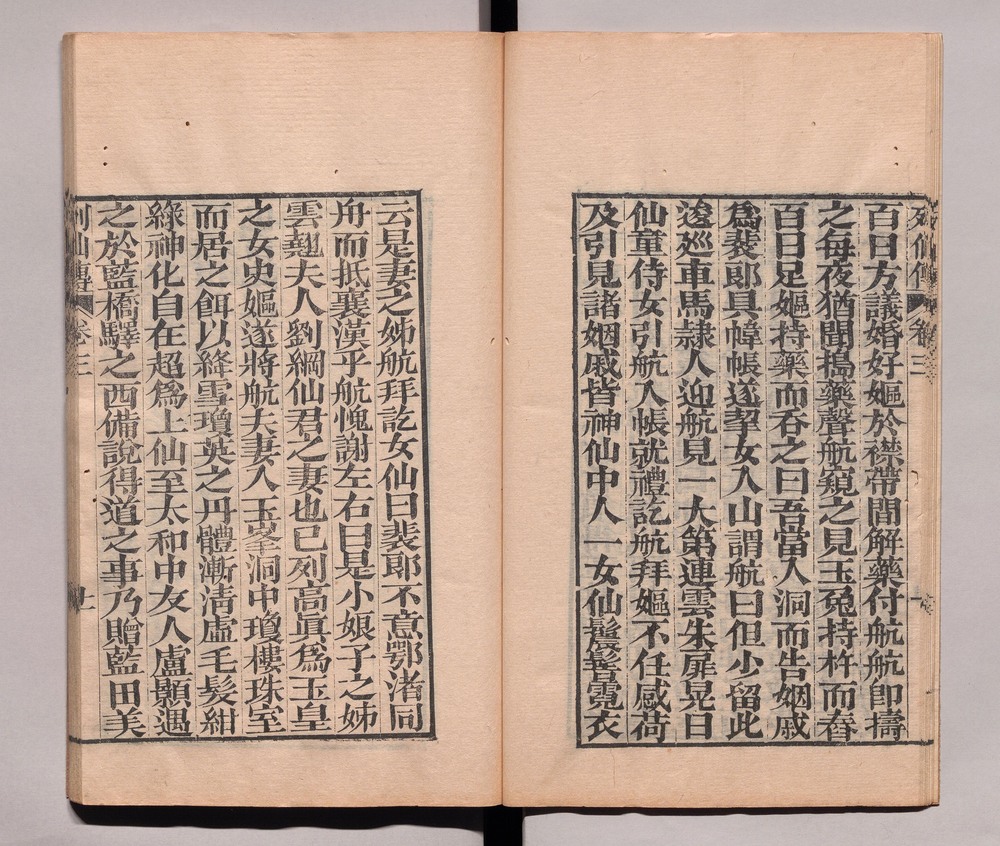 列仙傳 卷三
百日方議婚好嫗於襟帶間解藥付航航卽擣
之每夜猶聞搗藥聲航窺之見玉兔持杵而舂
百日足嫗持藥而吞之曰吾當入洞而告姻戚
爲裴郎具幃帳遂挈女入山謂航曰但少留此
逡巡車馬隷人迎航見一大第連雲朱扉晃日
仙童侍女引航入帳就禮訖航拜嫗不任感荷
及引見諸姻戚皆神仙中人一女仙鬟髻霓衣
云是妻之姊航拜訖女仙曰裴郎不意鄂渚同
舟而抵襄漢乎航愧謝左右曰是小娘子之姊
雲翹夫人劉綱仙君之妻也已列高眞爲玉皇
之女史嫗遂將航夫妻入玉峯洞中瓊樓珠室
而居之餌以絳雪瓊英之丹體漸淸虛毛髮紺
綠神化自在超爲上仙至太和中友人盧顥遇
之於藍橋驛之西備說得道之事乃贈藍田美
列仙傳 卷三